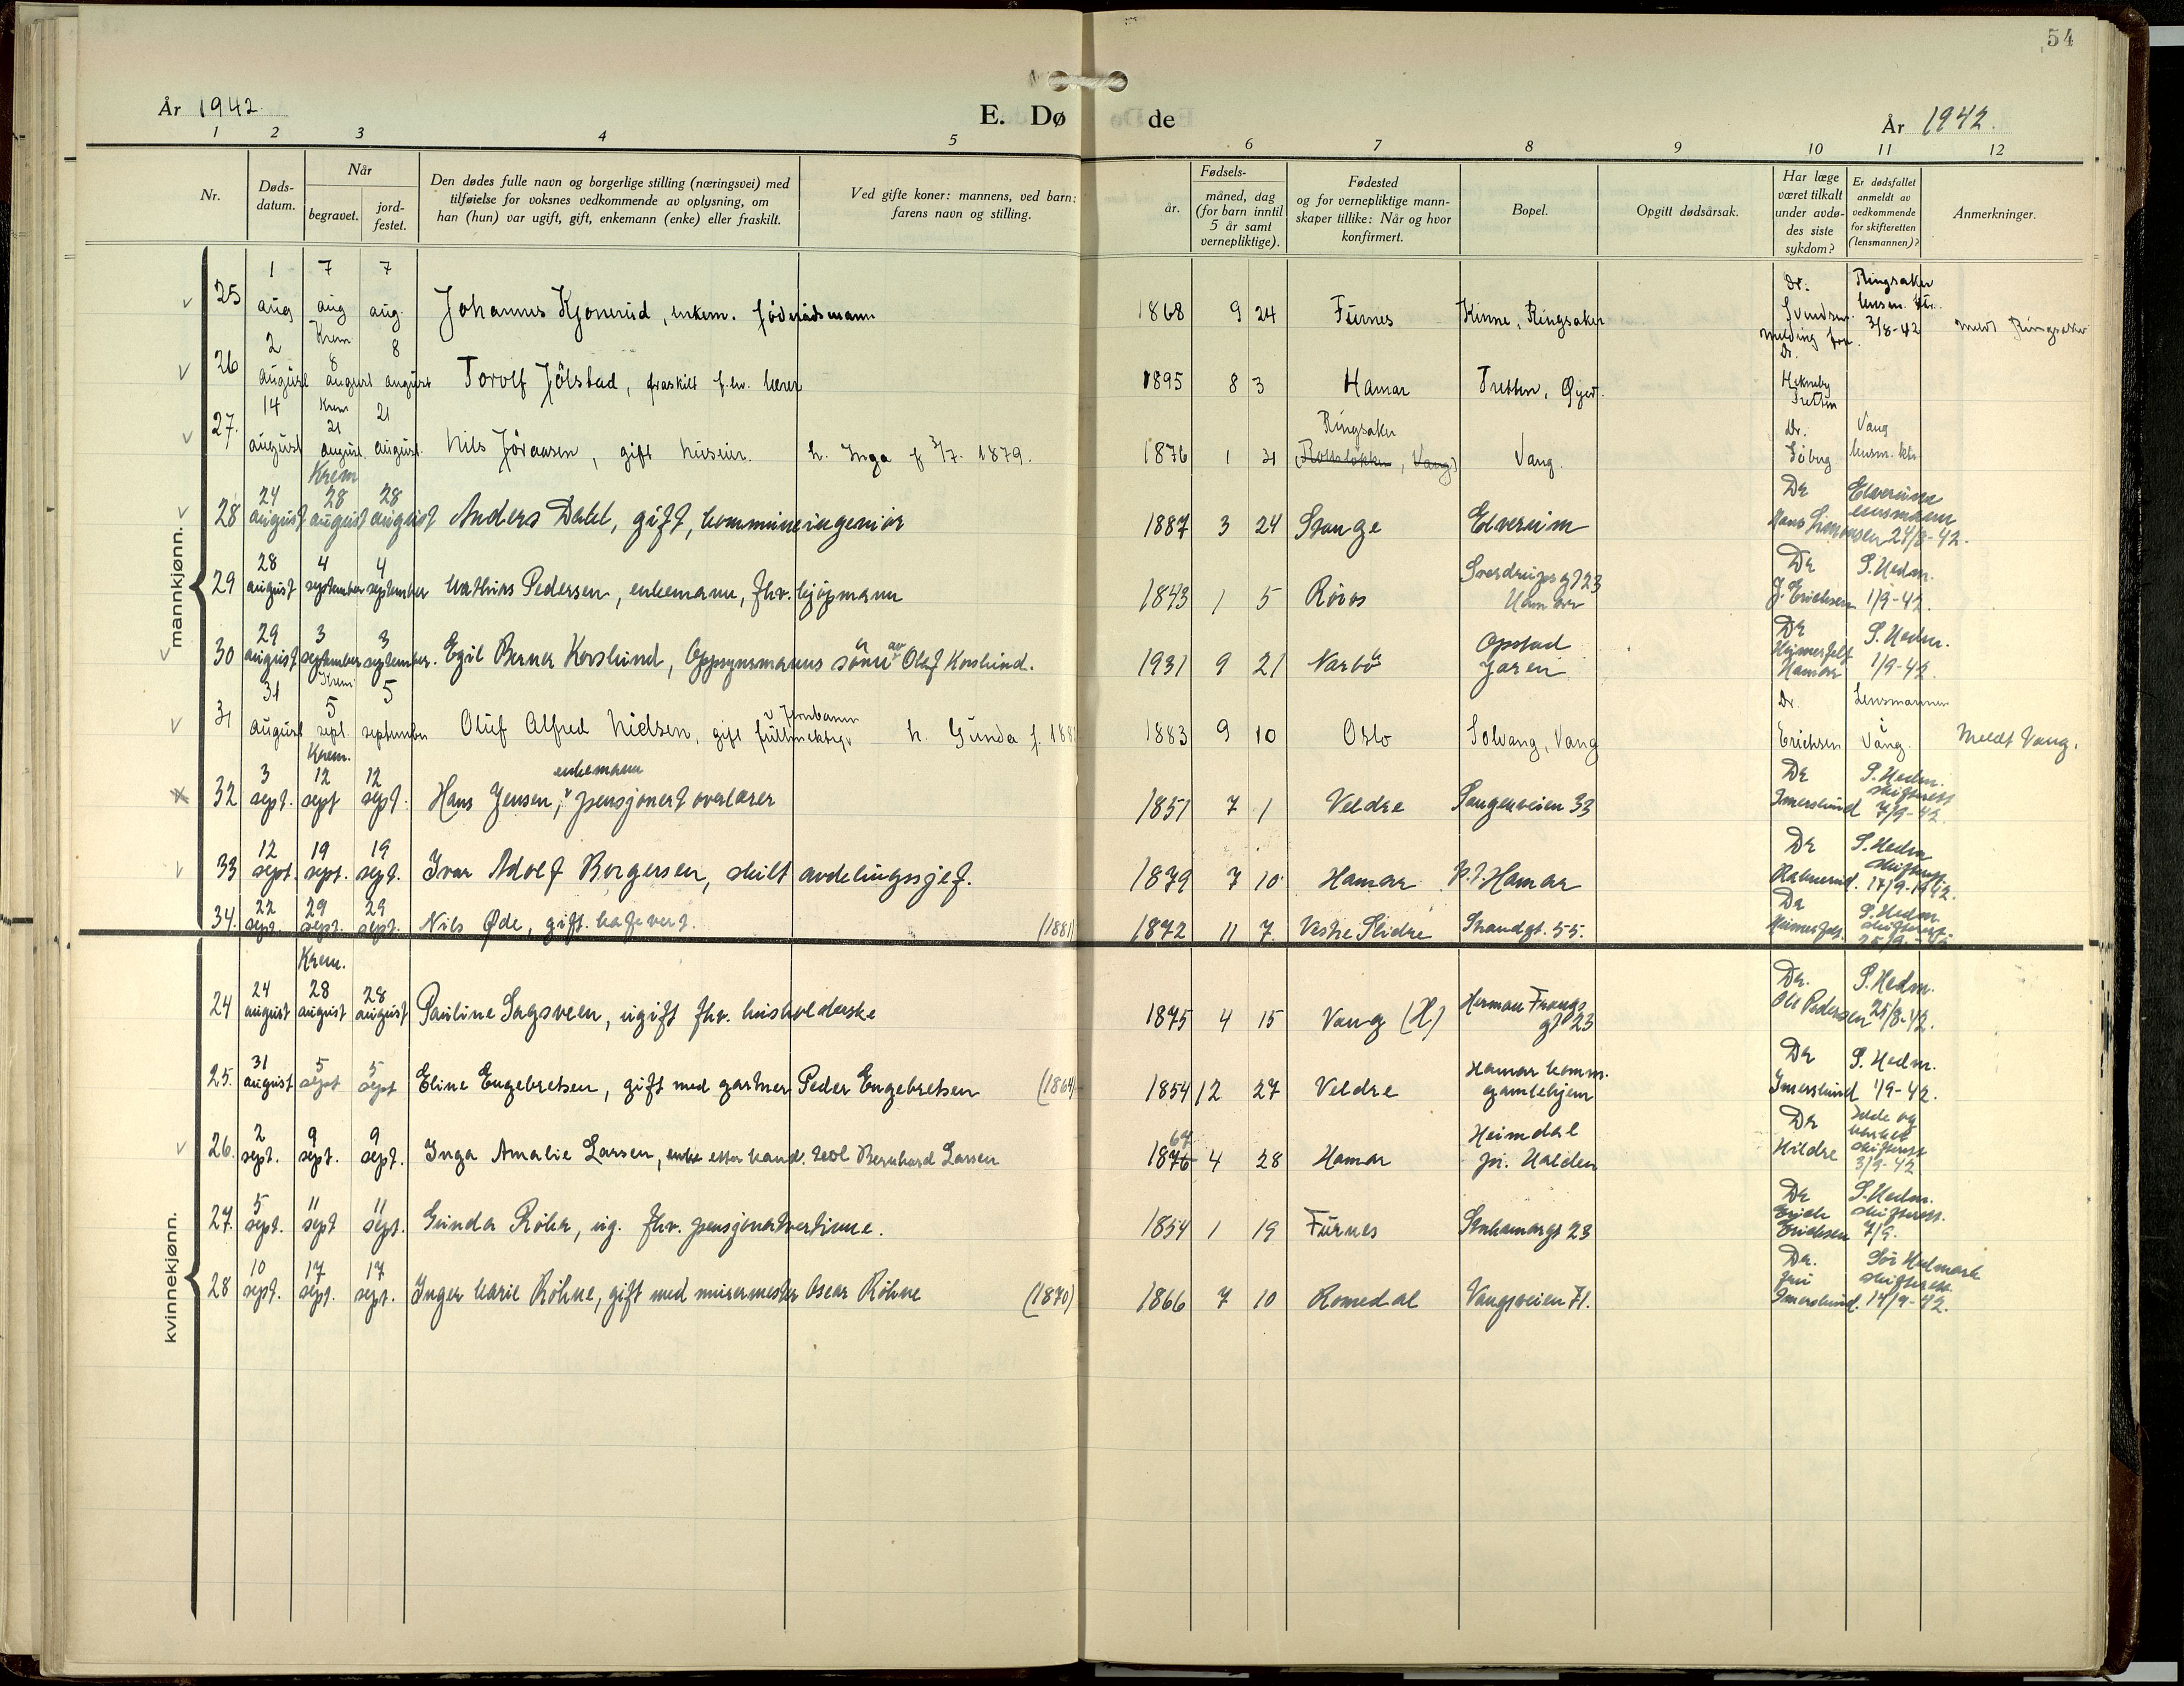 54
År 1942.
E. Dø de
År 1942.
1 2 3 4 5 6 7 8 9 10 11 12
Nr.
Døds-
datum.
Når
begravet.
jord-
festet.
Den dødes fulle navn og borgerlige stilling (næringsvei) med
tilføielse for voksnes vedkommende av oplysning, om
han (hun) var ugift, gift, enkemann (enke) eller fraskilt.
Ved gifte koner: mannens, ved barn:
farens navn og stilling.
Fødsels-
år.
måned, dag
(for barn inntil
5 år samt
vernepliktige).
Fødested
og for vernepliktige mann-
skaper tillike: Når og hvor
konfirmert.
Bopel.
Opgitt dødsårsak.
Har læge
været tilkalt
under avdø-
des siste
sykdom?
Er dødsfallet
anmeldt av
vedkommende
for skifteretten
(lensmannen)?
Anmerkninger.
mannkjønn.
25 1 aug 7 aug 7 aug. Johannes Kjonerud, enkem. föderådsmann 1868 9 24 Furnes Kinne, Ringsaker Dr. Svendsen Ringsaker lensm. ktr. 3/8-42 meldt Ringsaker
26 2 august Krem 8 august 8 august Torolf Jölstad, fraskilt f.hv. lærer 1895 8 3 Hamar Tretten, Øyer. melding fra Dr. Tretten
27. 14 august Krem 21 august 21 august. Nils Jöraasen, gift h. Inga f 3/7. 1879. 1876 1 21 Ringsaker (Vang) Vang. Dr. Soberg Vang lensm. ktr.
28 24 august Krem 28 august 28 august Anders Dæhl, gift, kommuneingeniør 1887 3 24 Stange Elverum Dr Hans Simonsen Elverum lensmann 24/8-42.
29 28 august 4 september 4 september Mathias Pedersen, enkemann, fhv. kjøpmann 1843 1 5 Röros Sverdrups gt 23 Hamar Dr J. Erichsen S. Hedm. 1/9-42.
30 29 august 3 september 3 september. Egil Berner Korslund, Oppsynsmanns sönn av Olaf Korslund. 1931 9 21 Narbö Opstad Jæren Dr Heimerfelt Hamar S. Hedm. 1/9-42.
31 31 august Krem 5 sept. 5 september Oluf Alfred Nielsen, gift fullmektig v Jernbanen h. Gunda f. 188 1883 9 10 Oslo Solvang, Vang Dr. Erichsen Lensmannen i Vang. Meldt Vang.
32 3 sept. Krem. 12 sept 12 sept. Hans Jensen, enkemann pensjonert overlærer 1851 7 1 Veldre Sangenveien 33 Dr Imerslund S. Hedm. skifterett 7/9-42.
33 12 sept. 19 sept. 19 sept. Ivar Adolf Borgersen, skilt avdelingssjef. 1879 7 10 Hamar p.t. Hamar Dr S. Hedm skifterett 17/9-1942.
34. 22 sept. 29 sept. 29 sept. Nils Øde, gift. kafevert. (1881) 1872 11 7 Vestre Slidre Strandgt. 55. Dr Heimerfelt. S. Hedm. skifterett
kvinnekjønn.
24 24 august Krem. 28 august 28 august Pauline Sagsveen, ugift fhv. husholderske 1875 4 15 Vang (H) Herman Frangs gt 23 Dr. Ole Pedersen S. Hedm. 25/8-42.
25. 31 august 5 sept 5 sept Eline Engebretsen, gift med gartner Peder Engebretsen (1864) 1854 12 27 Veldre Hamar komm. gamlehjem Dr Imerslund S. Hedm. 1/9-42.
26. 2 sept. 9 sept. 9 sept. Inga Amalie Larsen, enke etter cand. teol Bernhard Larsen 1876 67 4 28 Hamar Heimdal pr. Halden Dr Hildre Idde og Marker skifterett 3/9-42
27. 5 sept. 11 sept 11 sept. Gunda Röhr, ug. fhv. pensjonatvertinne. 1854 1 19 Furnes Stenhamargt 23 Dr Erik Erichsen S. Hedm. skifterett. 7/9.
28 10 sept. 17 sept. 17 sept. Inger Marie Röhne, gift med murermester Oscar Röhne (1870) 1866 7 10 Romedal Vangsveien 71. Dr. fru Imerslund. Sör Hedmark skifterett. 14/9-42.